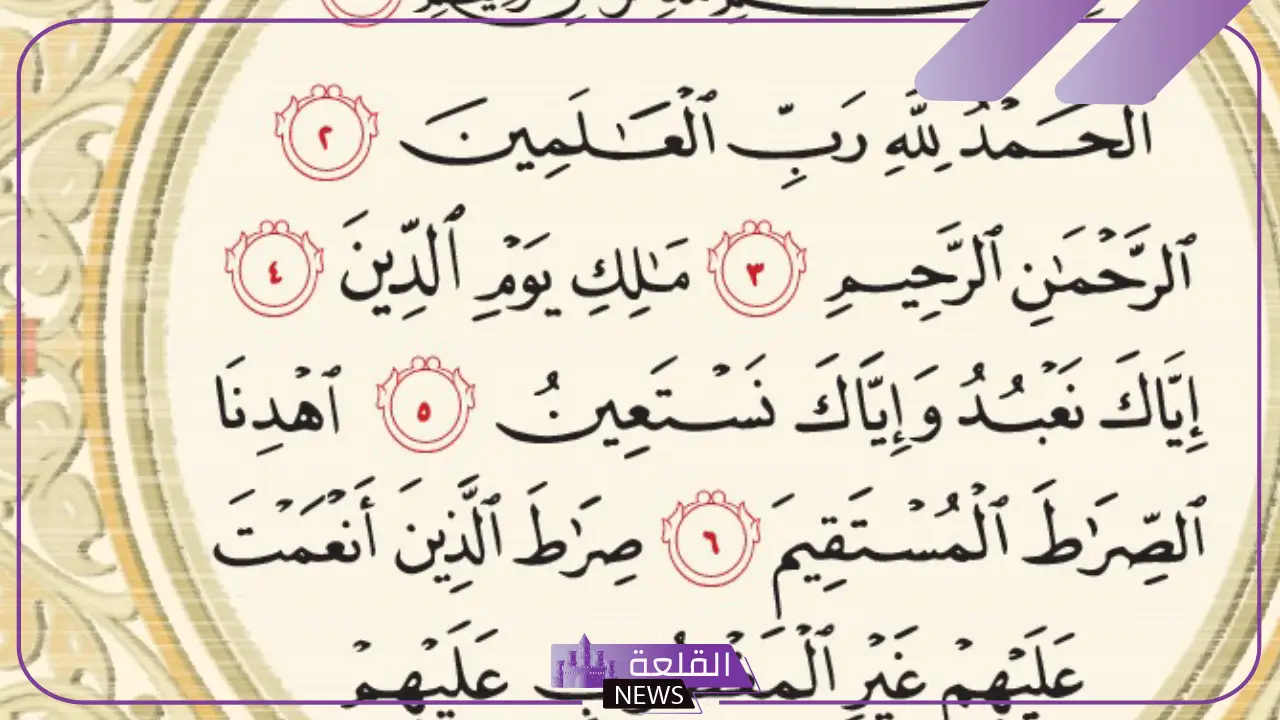 الحَمْدُ لِلَّهِ رَبِّ ٱلْعَـٰلَمِينَ ٢
ٱلرَّحْمَـٰنِ ٱلرَّحِيمِ ٣ مَـٰلِكِ يَوْمِ ٱلدِّينِ ٤
إِيَّاكَ نَعْبُدُ وَإِيَّاكَ نَسْتَعِينُ ٥ ٱهْدِنَا
ٱلصِّرَٰطَ ٱلْمُسْتَقِيمَ ٦ صِرَٰطَ ٱلَّذِينَ أَنْعَمْتَ
عَلَيْهِمْ غَيْرِ عَلَيْهِمْ
القلعة
NEWS